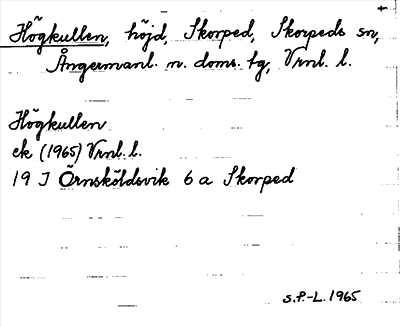 Högkullen, höjd, Skorped, Skorpeds sn,
Ångermanl. n. doms. tg, Vrnl. l.
Högkullen
ek (1965) Vrnl. l.
19 J Örnsköldsvik 6 a Skorped
S.P.-L. 1965